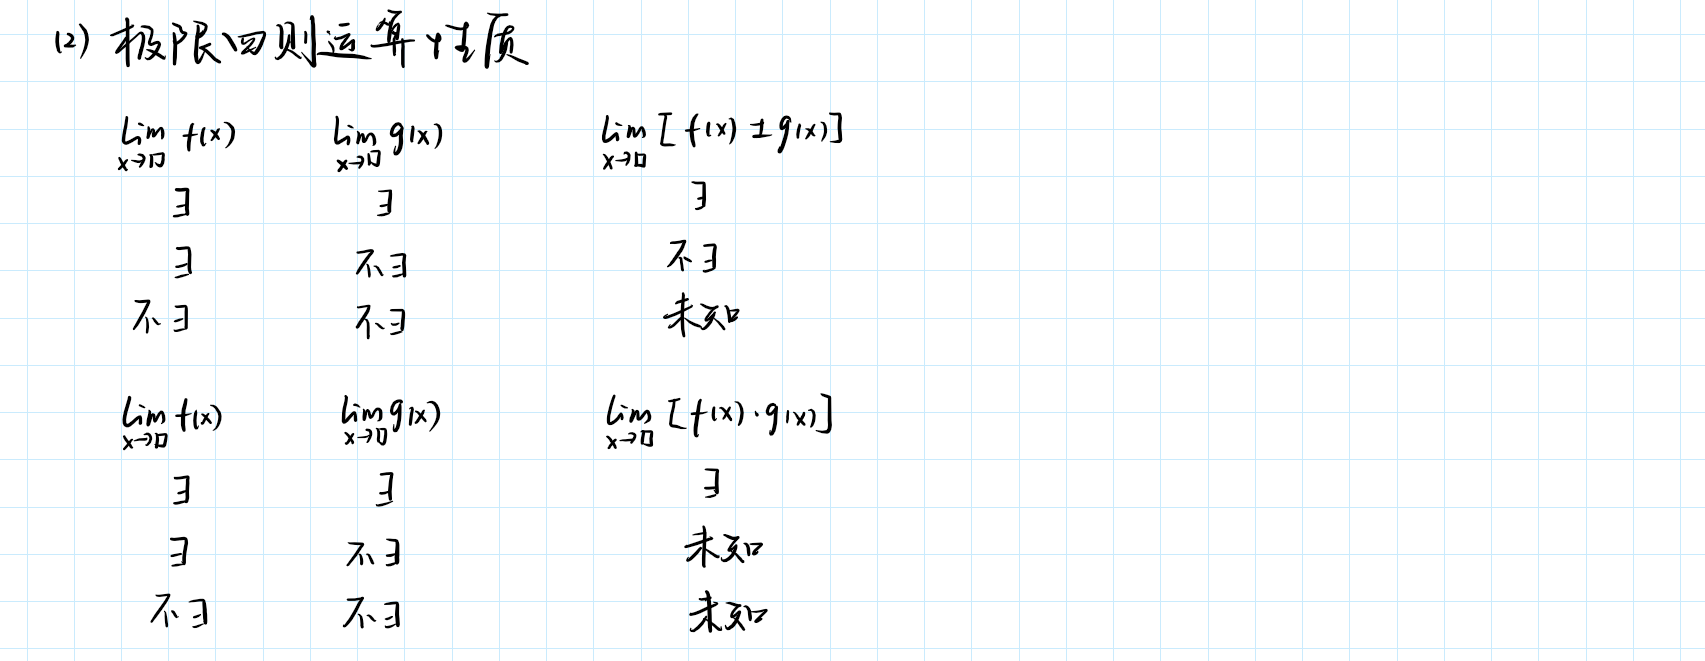 (2) 极限四则运算性质
lim x→□ f(x) lim x→□ g(x) lim x→□ [f(x) ± g(x)]
∃ ∃ ∃
∃ 不∃ 不∃
不∃ 不∃ 未知
lim x→□ f(x) lim x→□ g(x) lim x→□ [f(x)·g(x)]
∃ ∃ ∃
∃ 不∃ 未知
不∃ 不∃ 未知